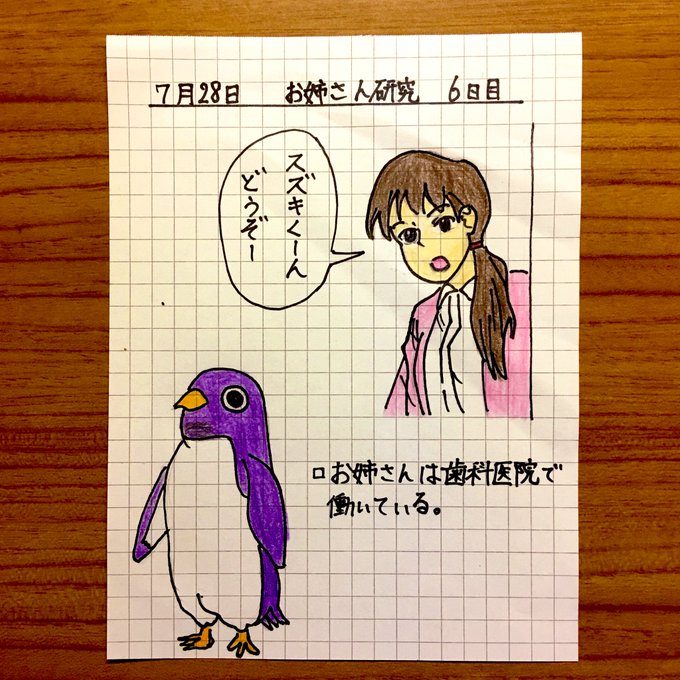 7月28日 お姉さん研究 6日目
スズキくーん
どうぞー
□お姉さんは歯科医院で
働いている。